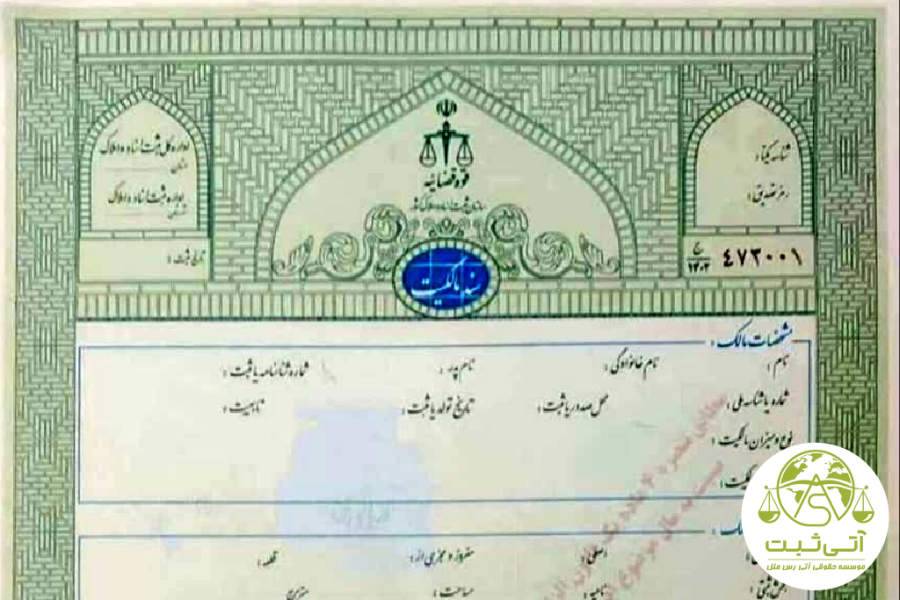 اداره کل ثبت اسناد و املاک
استان
اداره ثبت اسناد و املاک
شهرستان
تاریخ ثبت :
قوه قضائیه
سازمان ثبت اسناد و املاک کشور
سند مالکیت
شناسه یکتا :
رمز تصدیق :
ج
۱۴۰۲
۴۷۳۰۰۱
مشخصات مالک :
نام : نام خانوادگی : نام پدر : شماره شناسنامه یا ثبت :
شماره یا شناسه ملی : محل صدور یا ثبت : تاریخ تولد یا ثبت : تابعیت :
نوع و میزان مالکیت :
اصلی : مفروز و مجزی از : قطعه :
ناحیه : مساحت :
آتی ثبت
موسسه حقوقی آتی رس ملل